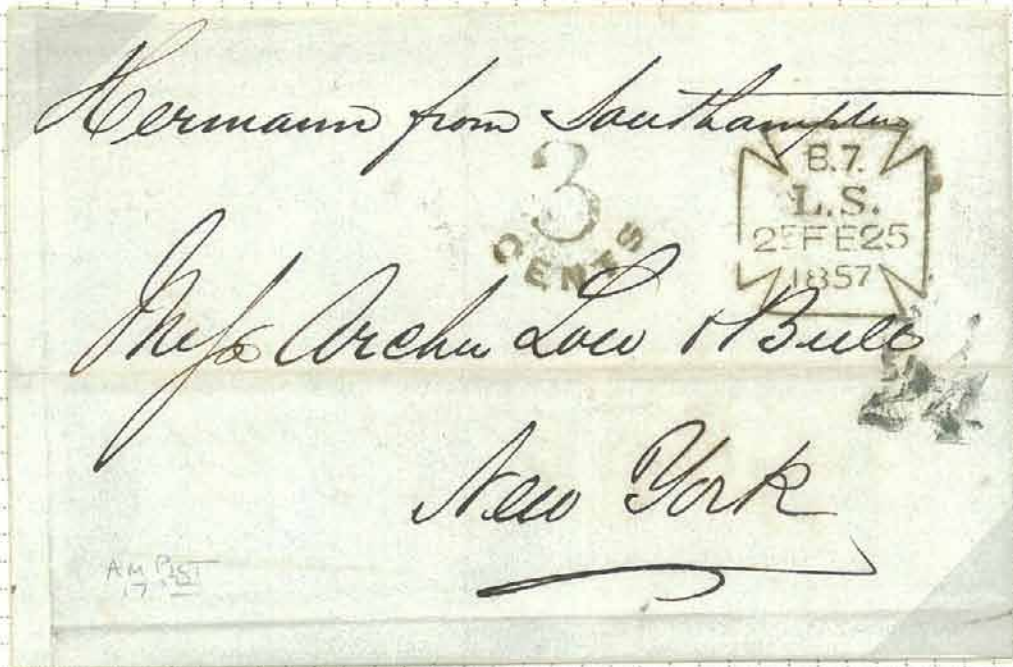 Hermann from Southampton
3
CENTS
B.7.
L.S.
25FE25
1857
Mess Archer Low & Bull
24
New York
AM PKT
17